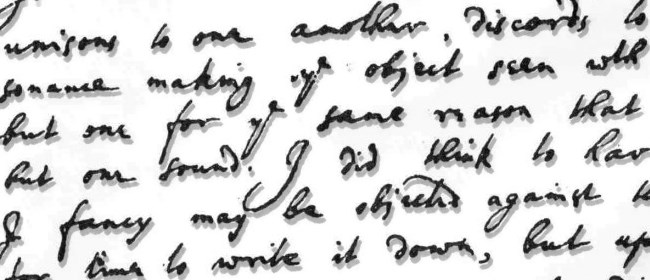 unisons to one another, discords to
sonance making yᵉ object seen with
but one for yᵉ same reason that
but one sound. I did think to hav
I fancy may be objected against
time to write it down, but up